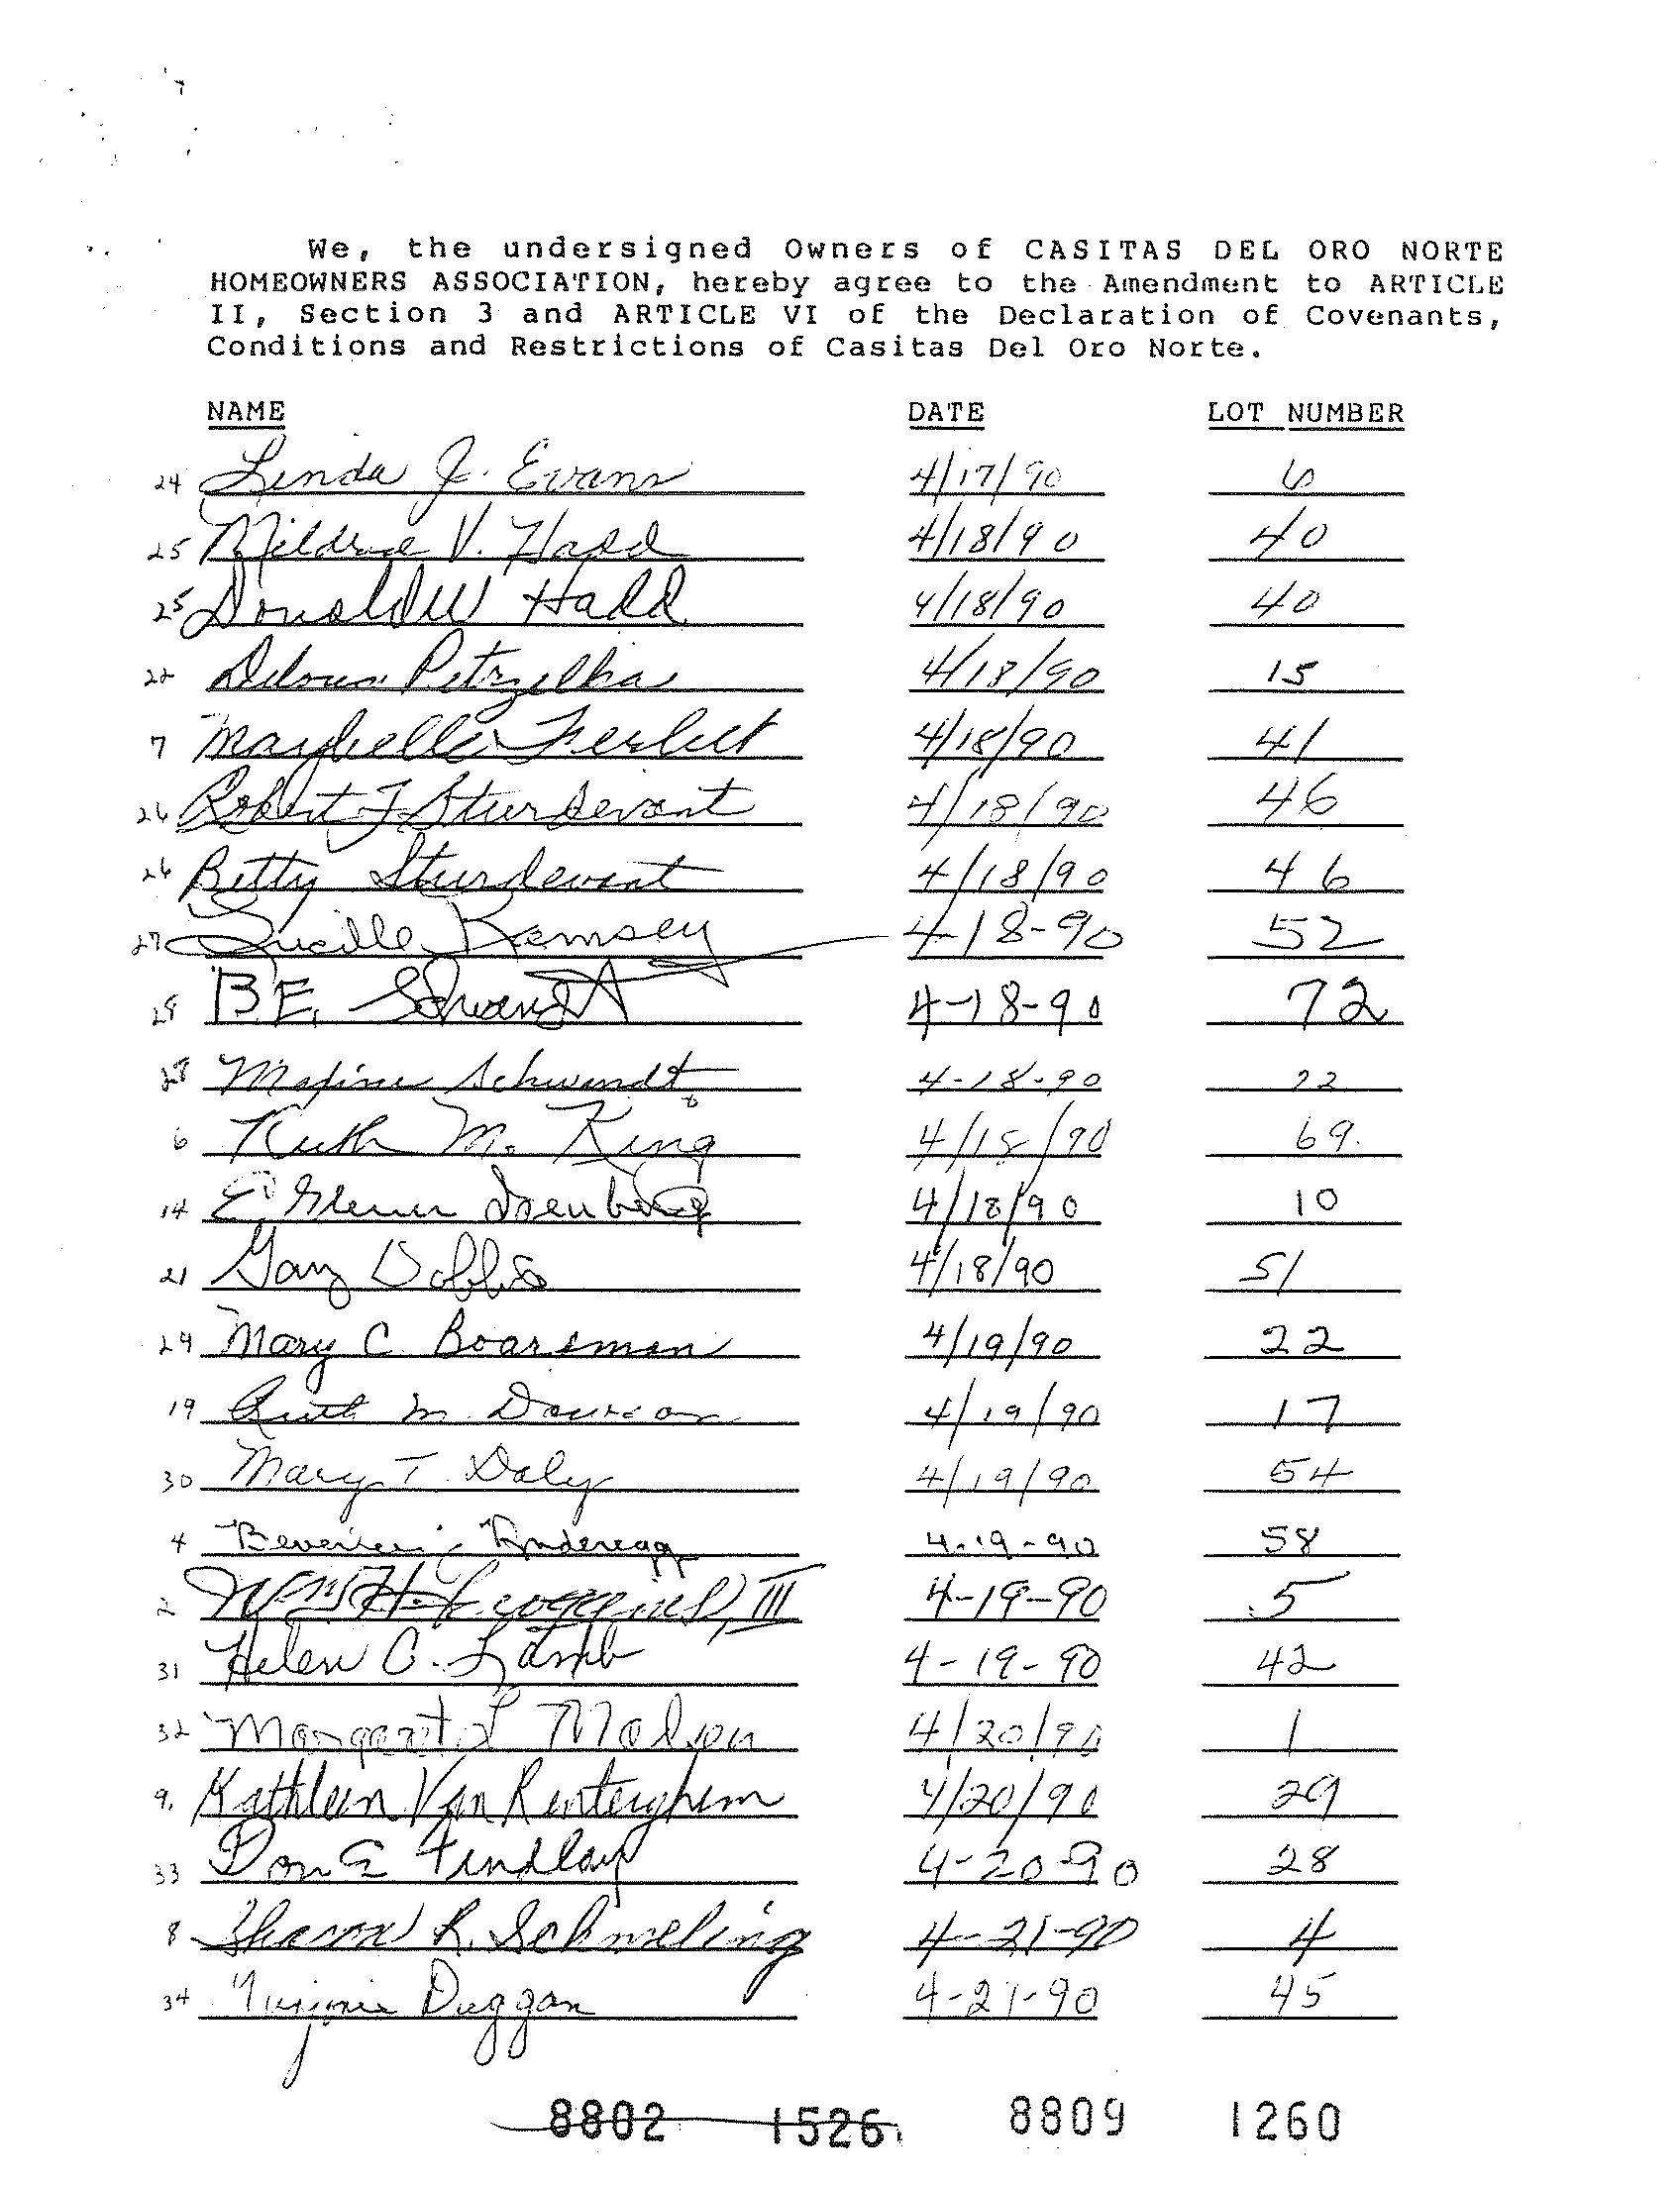 We, the undersigned Owners of CASITAS DEL ORO NORTE
HOMEOWNERS ASSOCIATION, hereby agree to the Amendment to ARTICLE
II, Section 3 and ARTICLE VI of the Declaration of Covenants,
Conditions and Restrictions of Casitas Del Oro Norte.
NAME DATE LOT NUMBER
24 Linda J. Evans 4/17/90 6
25 Mildred V. Hadd 4/18/90 40
25 Donald W Hadd 4/18/90 40
22 Petrzelka 4/18/90 15
7 Maybelle 4/18/90 41
26 Robert F Sturdevant 4/18/90 46
26 Betty Sturdevant 4/18/90 46
27 Lucille Ramsey 4-18-90 52
28 B.E. Schwandt 4-18-90 72
28 Maxine Schwandt 4-18-90 72
6 Ruth M. King 4/18/90 69.
14 E. 4/18/90 10
21 Gary 4/18/90 51
29 Mary C Boarsman 4/19/90 22
19 Ruth M. Dawson 4/19/90 17
30 Mary T. Daly 4/19/90 54
4 Anderegg 4-19-90 58
2 Wm H. Scroggins, III 4-19-90 5
31 Helen C. Lamb 4-19-90 42
32 Margaret L 4/20/90 1
9. Kathleen Van Renterghem 4/20/90 29
33 Don E Findlay 4-20-90 28
8 Sharon R. Schmeling 4-21-90 4
34 Virginia Duggan 4-21-90 45
8802 1526 8809 1260